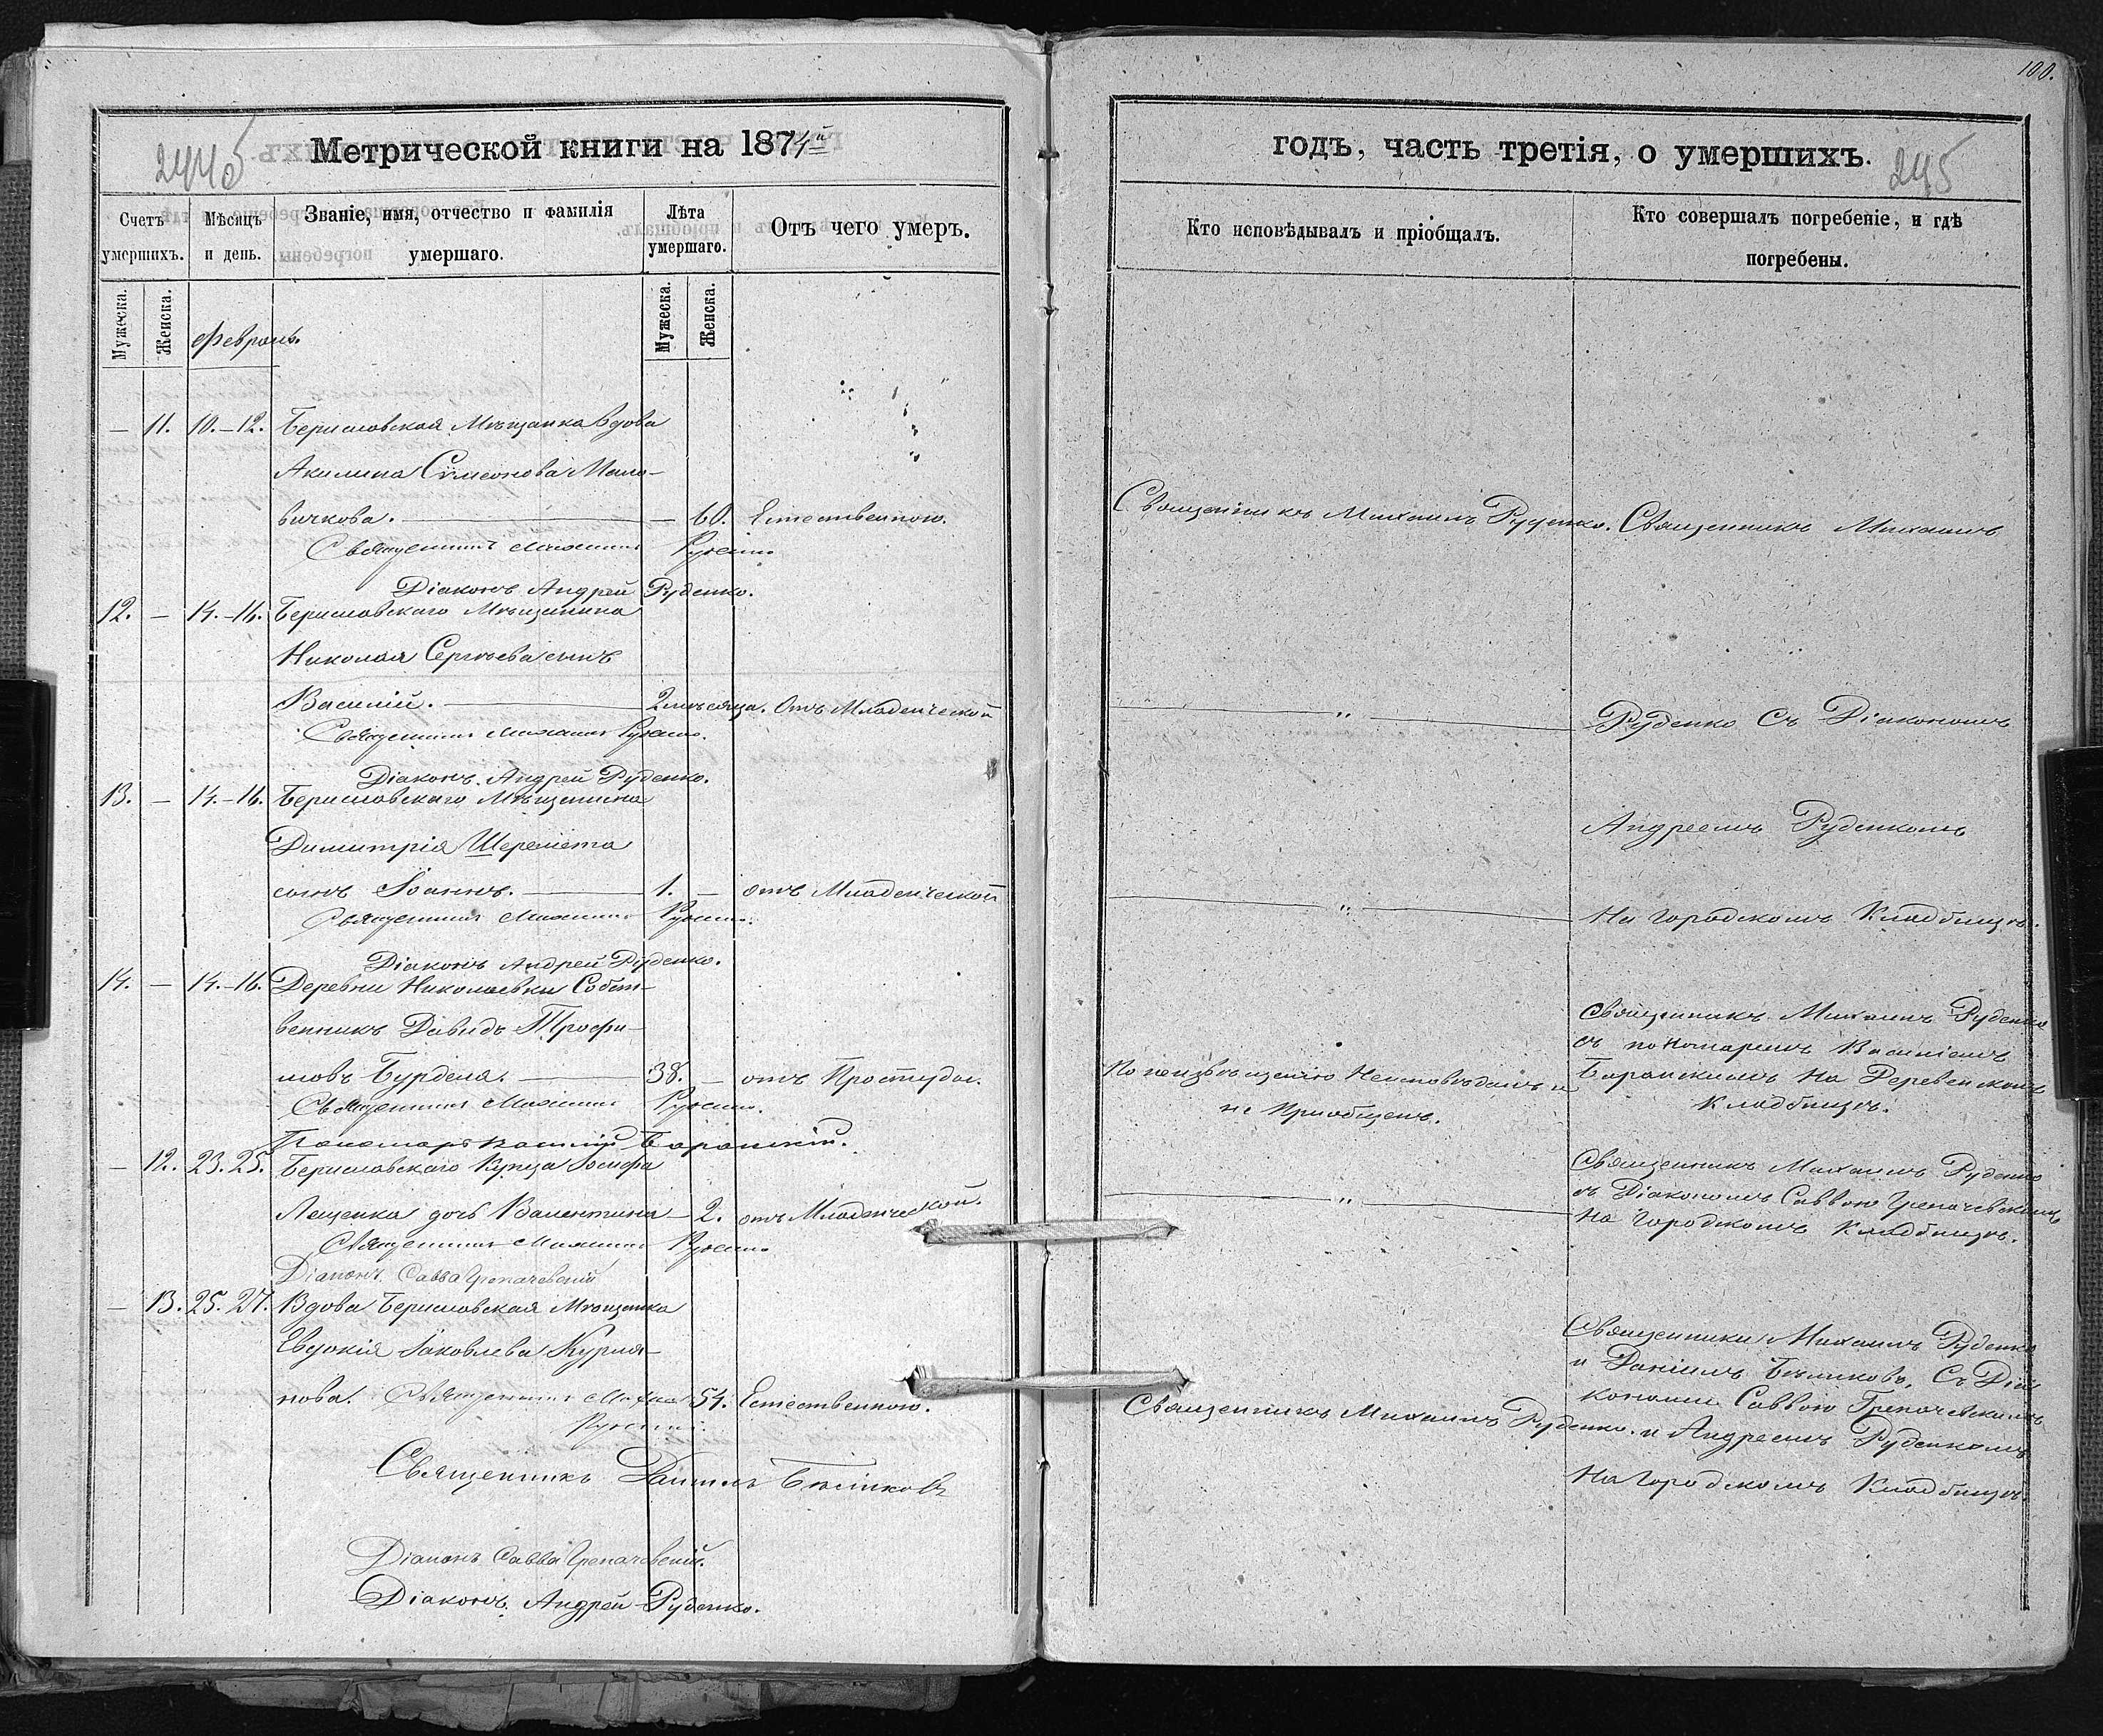 100.
244об
Метрической книги на 1874й
годъ, часть третія, о умершихъ.
245
Счетъ умершихъ.
Мѣсяцъ и день.
Званіе, имя, отчество и фамилія умершаго.
Лѣта умершаго.
Отъ чего умеръ.
Кто исповѣдывалъ и пріобщалъ.
Кто совершалъ погребеніе, и гдѣ погребены.
Мужеска.
Женска.
Февраль.
Мужеска.
Женска.
— 11. 10.-12. Бериславская Мѣщанка Вдова
Акилина Сѵмеонова Мало-
вичкова. — — 60. Естественною.
Священникъ Михаилъ Руденко. Священникъ Михаилъ
Священникъ Михаилъ Руденко
Діаконъ Андрей Руденко.
12. — 14.-16. Бериславскаго Мѣщанина
Николая Сергѣева сынъ
Василій. — 2 мѣсяца. Отъ Младенческой
— „ — Руденко Съ Діакономъ
Священникъ Михаилъ Руденко.
Діаконъ Андрей Руденко.
13. — 14.-16. Бериславскаго Мѣщанина
Андреемъ Руденкомъ
Димитрія Шеремета
сынъ Іоаннъ. — 1. — отъ Младенческой
— „ — На городскомъ Кладбищѣ.
Священникъ Михаилъ Руденко.
Діаконъ Андрей Руденко.
14. — 14.-16. Деревни Николаевки Собст-
венникъ Давидъ Трофи-
мовъ Бурдела. — 38. — отъ Простуды.
Священникъ Михаилъ Руденко.
Пономарь Василій Баранскій.
По неизвѣщенію Неисповѣданъ и
не Пріобщенъ.
Священникъ Михаилъ Руденко
съ пономаремъ Василіемъ
Баранскимъ на Деревенскомъ
Кладбищѣ.
— 12. 23. 25. Бериславскаго Купца Іосифа
Лещенка дочь Валентина — 2. отъ Младенческой.
Священникъ Михаилъ Руденко
Діаконъ Савва Гречачевскій
— „ —
Священникъ Михаилъ Руденко
съ Діакономъ Саввою
На городскомъ Кладбищѣ.
— 13. 25. 27. Вдова Бериславская Мѣщанка
Евдокія Іаковлева Курия-
нова. Священникъ Михаилъ 54. Естественною.
Руденко.
Священникъ Михаилъ Руденко.
Священники Михаилъ Руденко
и Даніилъ Бѣликовъ, Съ Діа
конами Саввою
и Андреемъ Руденкомъ
На Городскомъ Кладбищѣ.
Священникъ Даніилъ Бѣликовъ
Діаконъ Савва
Діаконъ Андрей Руденко.